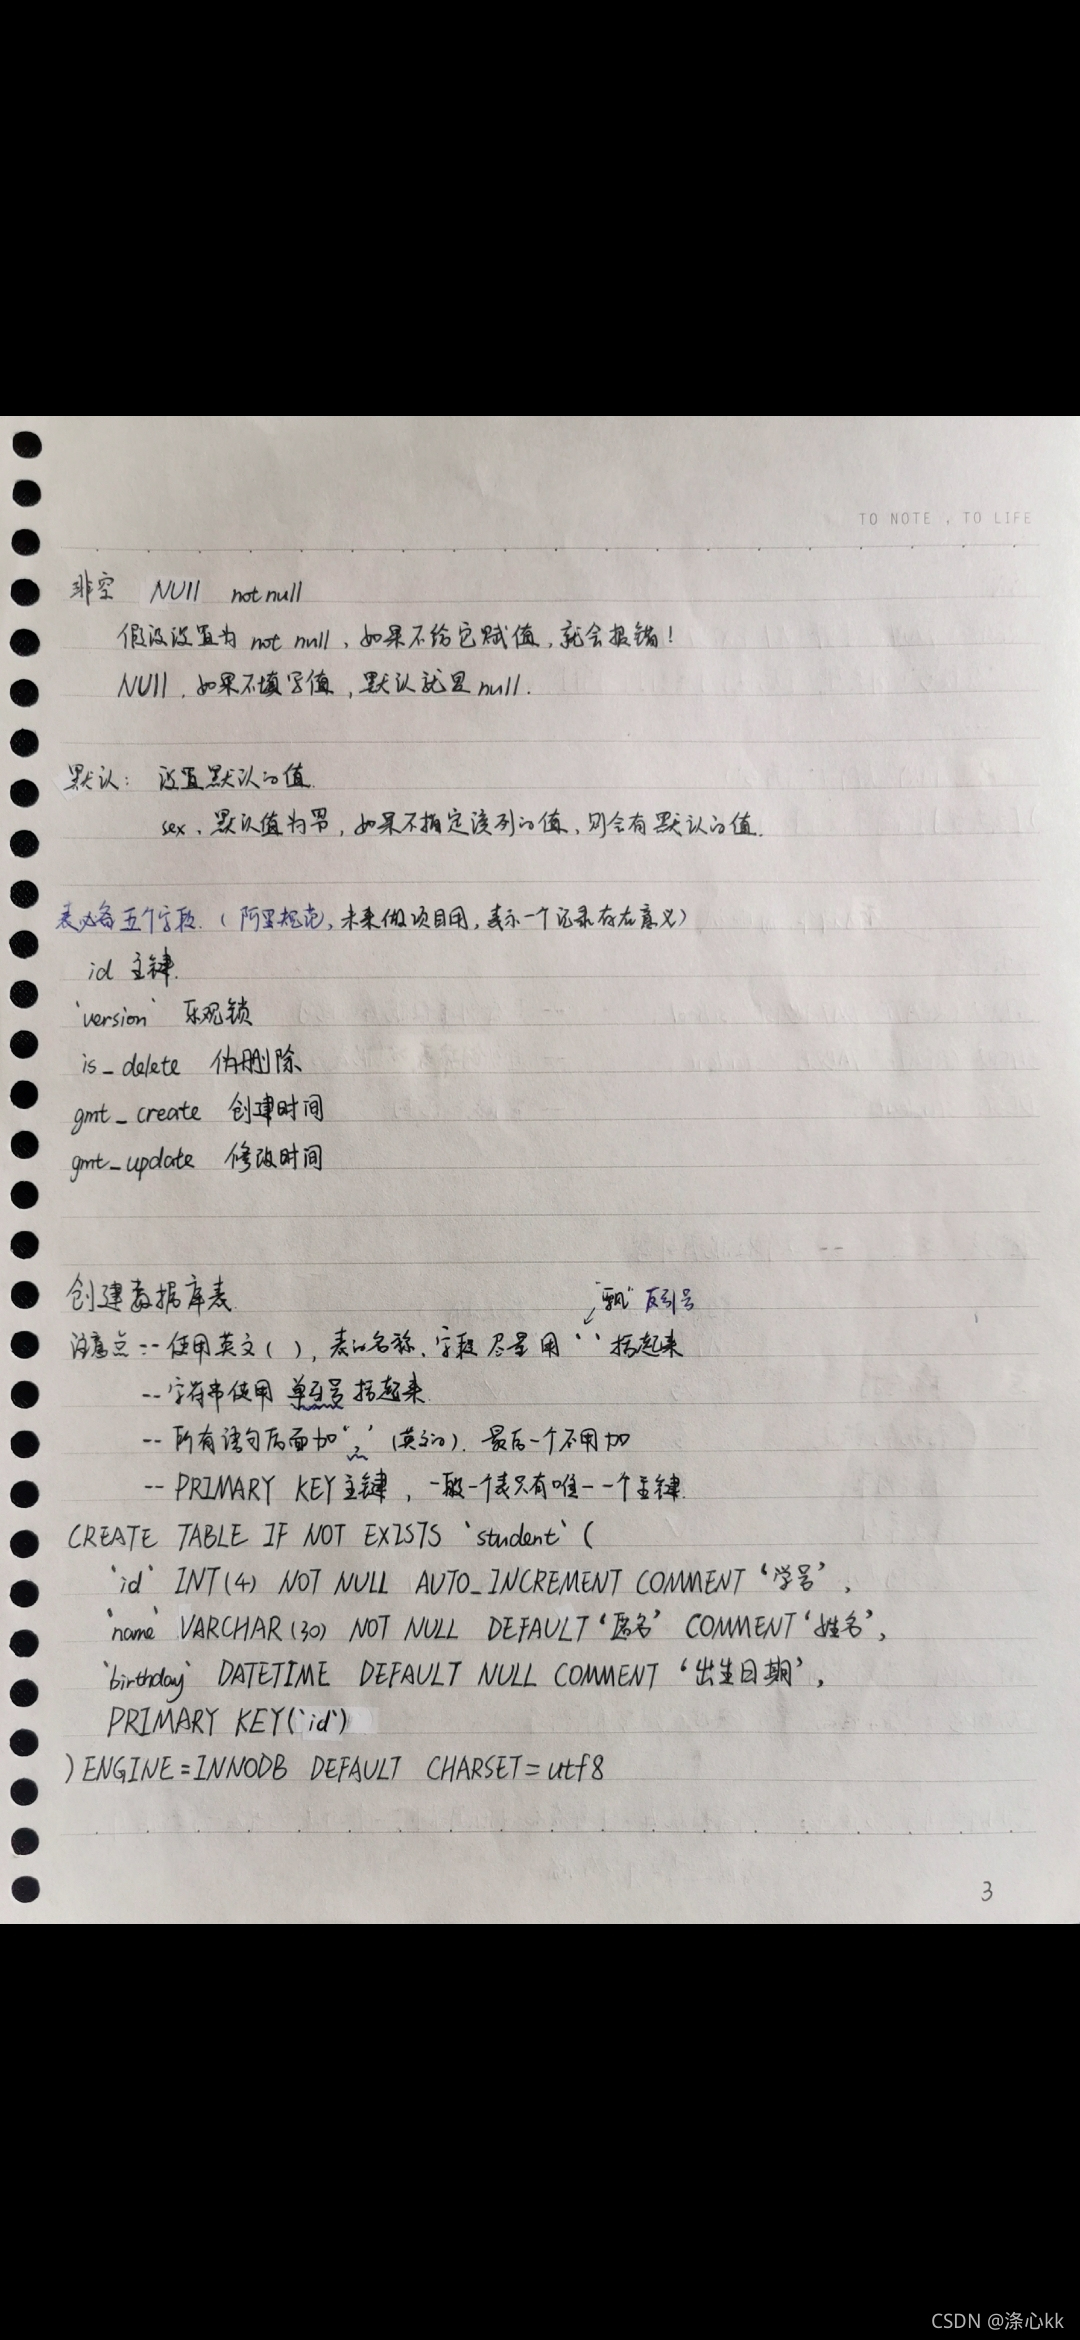 TO NOTE , TO LIFE
非空 NUll not null
假设设置为 not null，如果不给它赋值，就会报错！
NUll，如果不填写值，默认就是 null.
默认： 设置默认的值.
sex，默认值为男，如果不指定该列的值，则会有默认的值.
表必备五个字段.（阿里规范，未来做项目用，表示一个记录存在意义）
id 主键.
`version` 乐观锁
is_delete 伪删除
gmt_create 创建时间
gmt_update 修改时间
创建数据库表.
"飘" 反引号
注意点：-- 使用英文( )，表的名称、字段 尽量用 ` ` 括起来
-- 字符串使用 单引号 括起来.
-- 所有语句后面加‘,’（英文的）. 最后一个不用加
-- PRIMARY KEY 主键，一般一个表只有唯一一个主键.
CREATE TABLE IF NOT EXISTS `student` (
`id` INT(4) NOT NULL AUTO_INCREMENT COMMENT ‘学号’,
`name` VARCHAR(30) NOT NULL DEFAULT ‘匿名’ COMMENT ‘姓名’,
`birthday` DATETIME DEFAULT NULL COMMENT ‘出生日期’,
PRIMARY KEY(`id`)
) ENGINE=INNODB DEFAULT CHARSET=utf8
3
CSDN @涤心kk